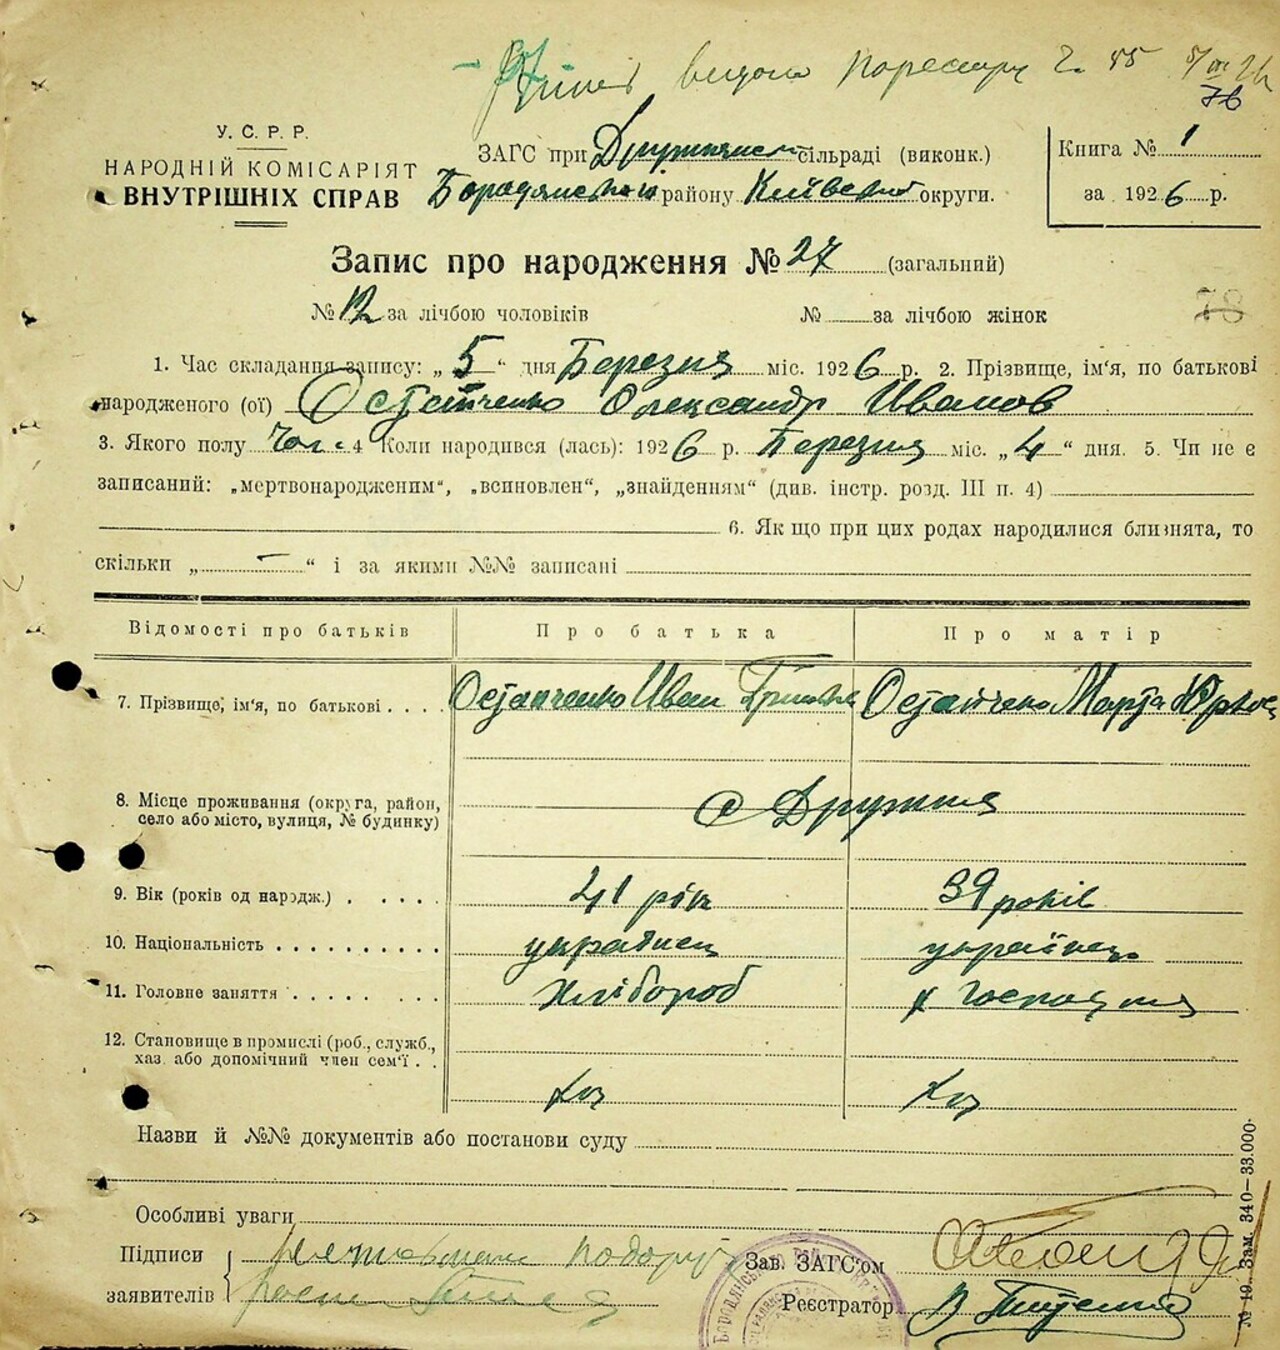 видана по реєстру ч. 55 5/III 26
76
У. С. Р. Р.
НАРОДНІЙ КОМІСАРІЯТ
ВНУТРІШНІХ СПРАВ
ЗАГС при Дружнянск сільраді (виконк.)
Бородянского району Київскої округи.
Книга № 1
за 1926 р.
Запис про народження № 27 (загальний)
№ 12 за лічбою чоловіків № за лічбою жінок
78
1. Час складання запису: „ 5 “ дня Березня міс. 1926 р. 2. Прізвище, ім'я, по батькові
народженого (ої) Остапченко Олександр Иванов
3. Якого полу Чол. 4 Коли народився (лась): 1926 р. Березня міс. „ 4 “ дня. 5. Чи не є
записаний: „мертвонародженим“, „всиновлен“, „знайденням“ (див. інстр. розд. III п. 4)
6. Як що при цих родах народилися близнята, то
скільки „ — “ і за якими №№ записані
Відомості про батьків Про батька Про матір
7. Прізвище, ім'я, по батькові . . . . Остапченко Иван Остапченко Марта Юрков
8. Місце проживання (округа, район,
село або місто, вулиця, № будинку)
с Дружня
9. Вік (років од народж.) . . . . . 41 рік 39 років
10. Національність . . . . . . . . . . українец українець
11. Головне заняття . . . . . . . . Хлібороб господиня
12. Становище в промислі (роб., служб.,
хаз. або допомічний член сем'ї . .
Хоз Хоз
Назви й №№ документів або постанови суду
Особливі уваги
Підписи
заявителів
Зав. ЗАГС'ом
Реєстратор
№ 19. Зам. 340—33.000.